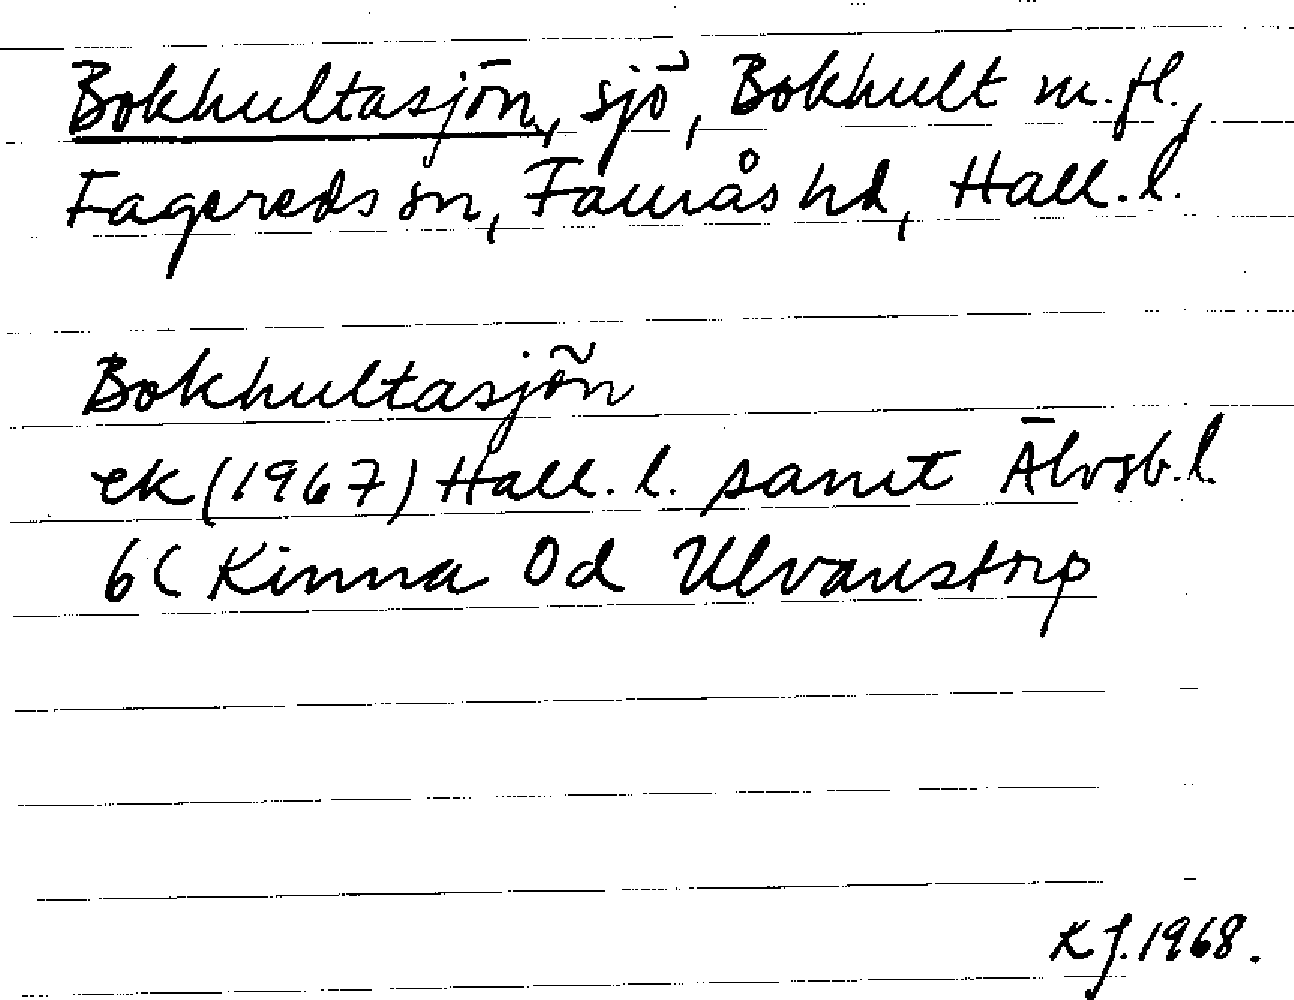 Bokhultasjön, sjö, Bokhult m.fl.,
Fagereds sn, Faurås hd, Hall.l.
Bokhultasjön
ek (1967) Hall.l. samt Älvsb.l.
6C Kinna 0d Ulvanstorp
K.J. 1968.